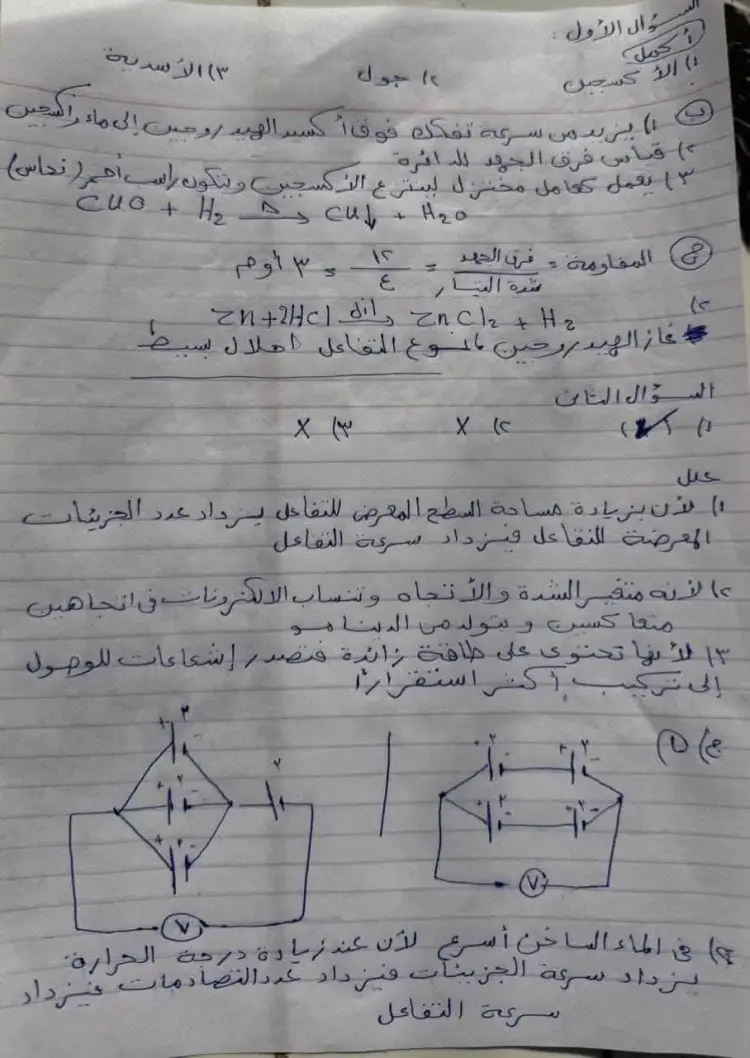 السؤال الأول:
أكمل
١) الأكسجين ٢) جول ٣) الأسدية
ب ١) يزيد من سرعة تفكك فوق أكسيد الهيدروجين إلى ماء وأكسجين
٢) قياس فرق الجهد للدائرة
٣) يعمل كعامل مختزل لينتزع الأكسجين ويتكون راسب أحمر (نحاس)
CuO + H2 Δ→ Cu↓ + H2O
ج المقاومة = فرق الجهد / شدة التيار = ١٢ / ٤ = ٣ أوم
٢) Zn + 2HCl dil→ ZnCl2 + H2
غاز الهيدروجين نوع التفاعل احلال بسيط
السؤال الثانى
١) (✓) ٢) X ٣) X
علل
١) لأن بزيادة مساحة السطح المعرض للتفاعل يزداد عدد الجزيئات
المعرضة للتفاعل فيزداد سرعة التفاعل
٢) لأنه متغير الشدة والأتجاه وتنساب الالكترونات فى اتجاهين
متعاكسين ويتولد من الدينامو
٣) لأنها تحتوى على طاقة زائدة فتصدر إشعاعات للوصول
إلى تركيب أكثر استقرارًا
ج) ١)
+ ٢ - + ٢ -
+ ٢ - + ٢ -
V
+ ٢ -
+ ٢ - ٢
+ ٢ -
V
٢) فى الماء الساخن أسرع لأن عند زيادة درجة الحرارة
يزداد سرعة الجزيئات فيزداد عدد التصادمات فيزداد
سرعة التفاعل